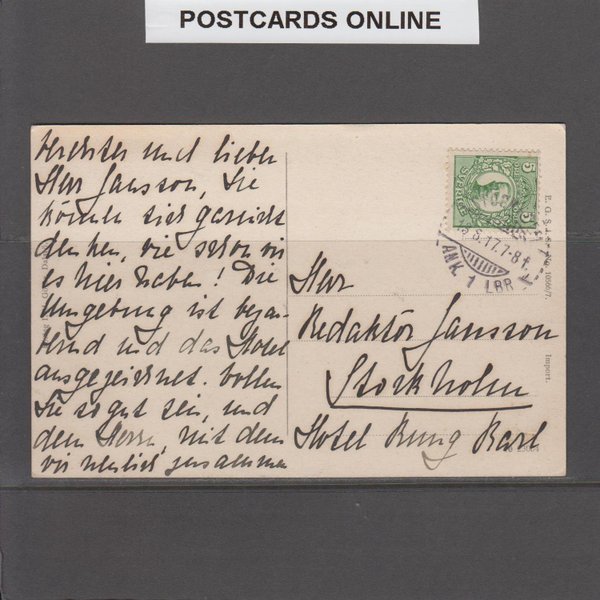 POSTCARDS ONLINE
Verehrter und lieber
Herr Jansson, Sie
können sich garnicht
denken, wie schön wir
es hier haben! Die
Umgebung ist bezau-
bernd und das Hotel
ausgezeichnet. Wollen
Sie so gut sein, und
dem Herrn, mit dem
wir neulich zusammen
SVERIGE
5 5
6.17.7-8 F.
ANK 1 LBR
Herr
Redaktör Jansson
Stockholm
Hotel Kung Karl
Import.